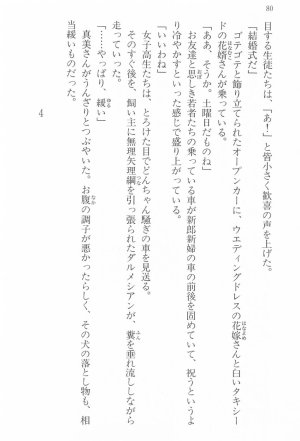 80
目する生徒たちは、「あ！」と皆小さく歓喜の声を上げた。
「結婚式だ」
ゴテゴテと飾り立てられたオープンカーに、ウエディングドレスの花嫁さんと白いタキシー
ドの花婿さんが乗っている。
「ああ、そうか。土曜日だものね」
お友達と思しき若者たちの乗っている車が新郎新婦の車の前後を固めていて、祝うというよ
り冷やかすといった感じで盛り上がっている。
「いいわね」
女子高生たちは、とろけた目でどんちゃん騒ぎの車を見送る。
そのすぐ後を、飼い主に無理矢理綱を引っ張られたダルメシアンが、糞を垂れ流ししながら
走っていった。
「……やっぱり、緩い」
真美さんがうんざりとつぶやいた。お腹の調子が悪かったらしく、その犬の落とし物も、相
当緩いものだった。
4